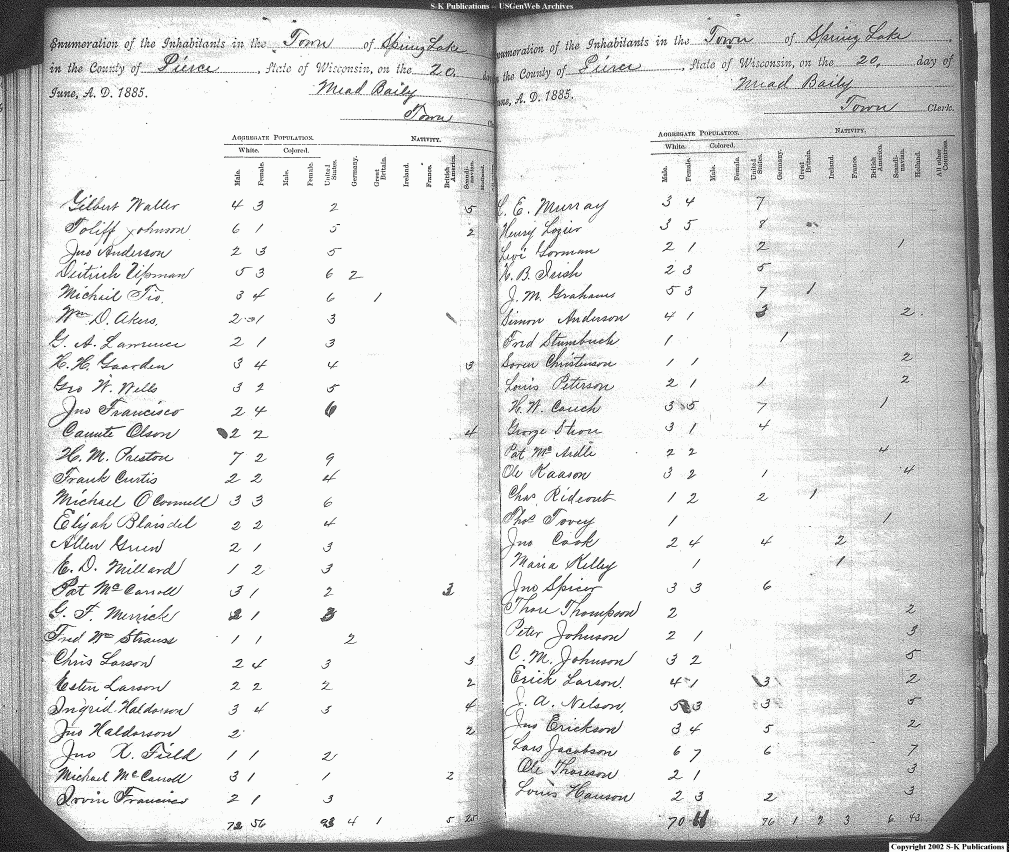 S-K Publications -- USGenWeb Archives
Enumeration of the Inhabitants in the Town of Spring Lake
in the County of Pierce, State of Wisconsin, on the 20, day
June, A. D. 1885. Mead Baily
Town
AGGREGATE POPULATION. NATIVITY.
White. Colored.
Male. Female. Male. Female. United States. Germany. Great Britain. Ireland. France. British America. Scandinavian. Holland.
Gilbert Waller 4 3 2 5
Toliff Johnson 6 1 5 2
Jno Anderson 2 3 5
Deitrich Upman 5 3 6 2
Michail 3 4 6 1
Wm D. Akers 2 1 3
G. A. Lawrence 2 1 3
H. H. Gaarden 3 4 4 3
Geo W. Wells 3 2 5
Jno Francisco 2 4 6
Canute Olson 2 2 4
H. M. Preston 7 2 9
Frank Curtis 2 2 4
Michael O Connell 3 3 6
Elijah Blaisdel 2 2 4
Allen Green 2 1 3
E. D. Millard 1 2 3
Pat McCarroll 3 1 2 3
G. F. Merrick 2 1 3
Fred Wm Strauss 1 1 2
Chris Larson 2 4 3 3
Esten Larson 2 2 2 2
Ingrid Haldorson 3 4 3 4
Jno Haldorson 2 2
Jno X. Field 1 1 2
Michael McCarroll 3 1 1 2
Irvin Francisco 2 1 3
72 56 93 4 1 5 25
Enumeration of the Inhabitants in the Town of Spring Lake,
in the County of Pierce, State of Wisconsin, on the 20, day of
June, A. D. 1885. Mead Baily
Town Clerk.
AGGREGATE POPULATION. NATIVITY.
White. Colored.
Male. Female. Male. Female. United States. Germany. Great Britain. Ireland. France. British America. Scandinavian. Holland. All other Countries.
E. Murray 3 4 7
Henry Lozier 3 5 8
Levi Gorman 2 1 2 1
H. B. Irish 2 3 5
J. M. Grahams 5 3 7 1
Simon Anderson 4 1 3 2
Ford Stumbuck 1 1
Soren Christenson 1 1 2
Louis Peterson 2 1 1 2
H. W. Couch 3 5 7 1
George Stron 3 1 4
Pat Mc 2 2 4
Ole Kaason 3 2 1 4
Chas Rideout 1 2 2 1
Thos Tovey 1 1
Jno Cook 2 4 4 2
Maria Kelley 1 1
Jno Spicer 3 3 6
Thore Thompson 2 2
Peter Johnson 2 1 3
C. M. Johnson 3 2 5
Erick Larson 4 1 3 2
J. A. Nelson 5 3 3 5
Jno Erickson 3 4 5 2
Lars Jacobson 6 7 6 7
Ole Thoreson 2 1 3
Louis Hanson 2 3 2 3
70 76 1 2 3 6 43
Copyright 2002 S-K Publications